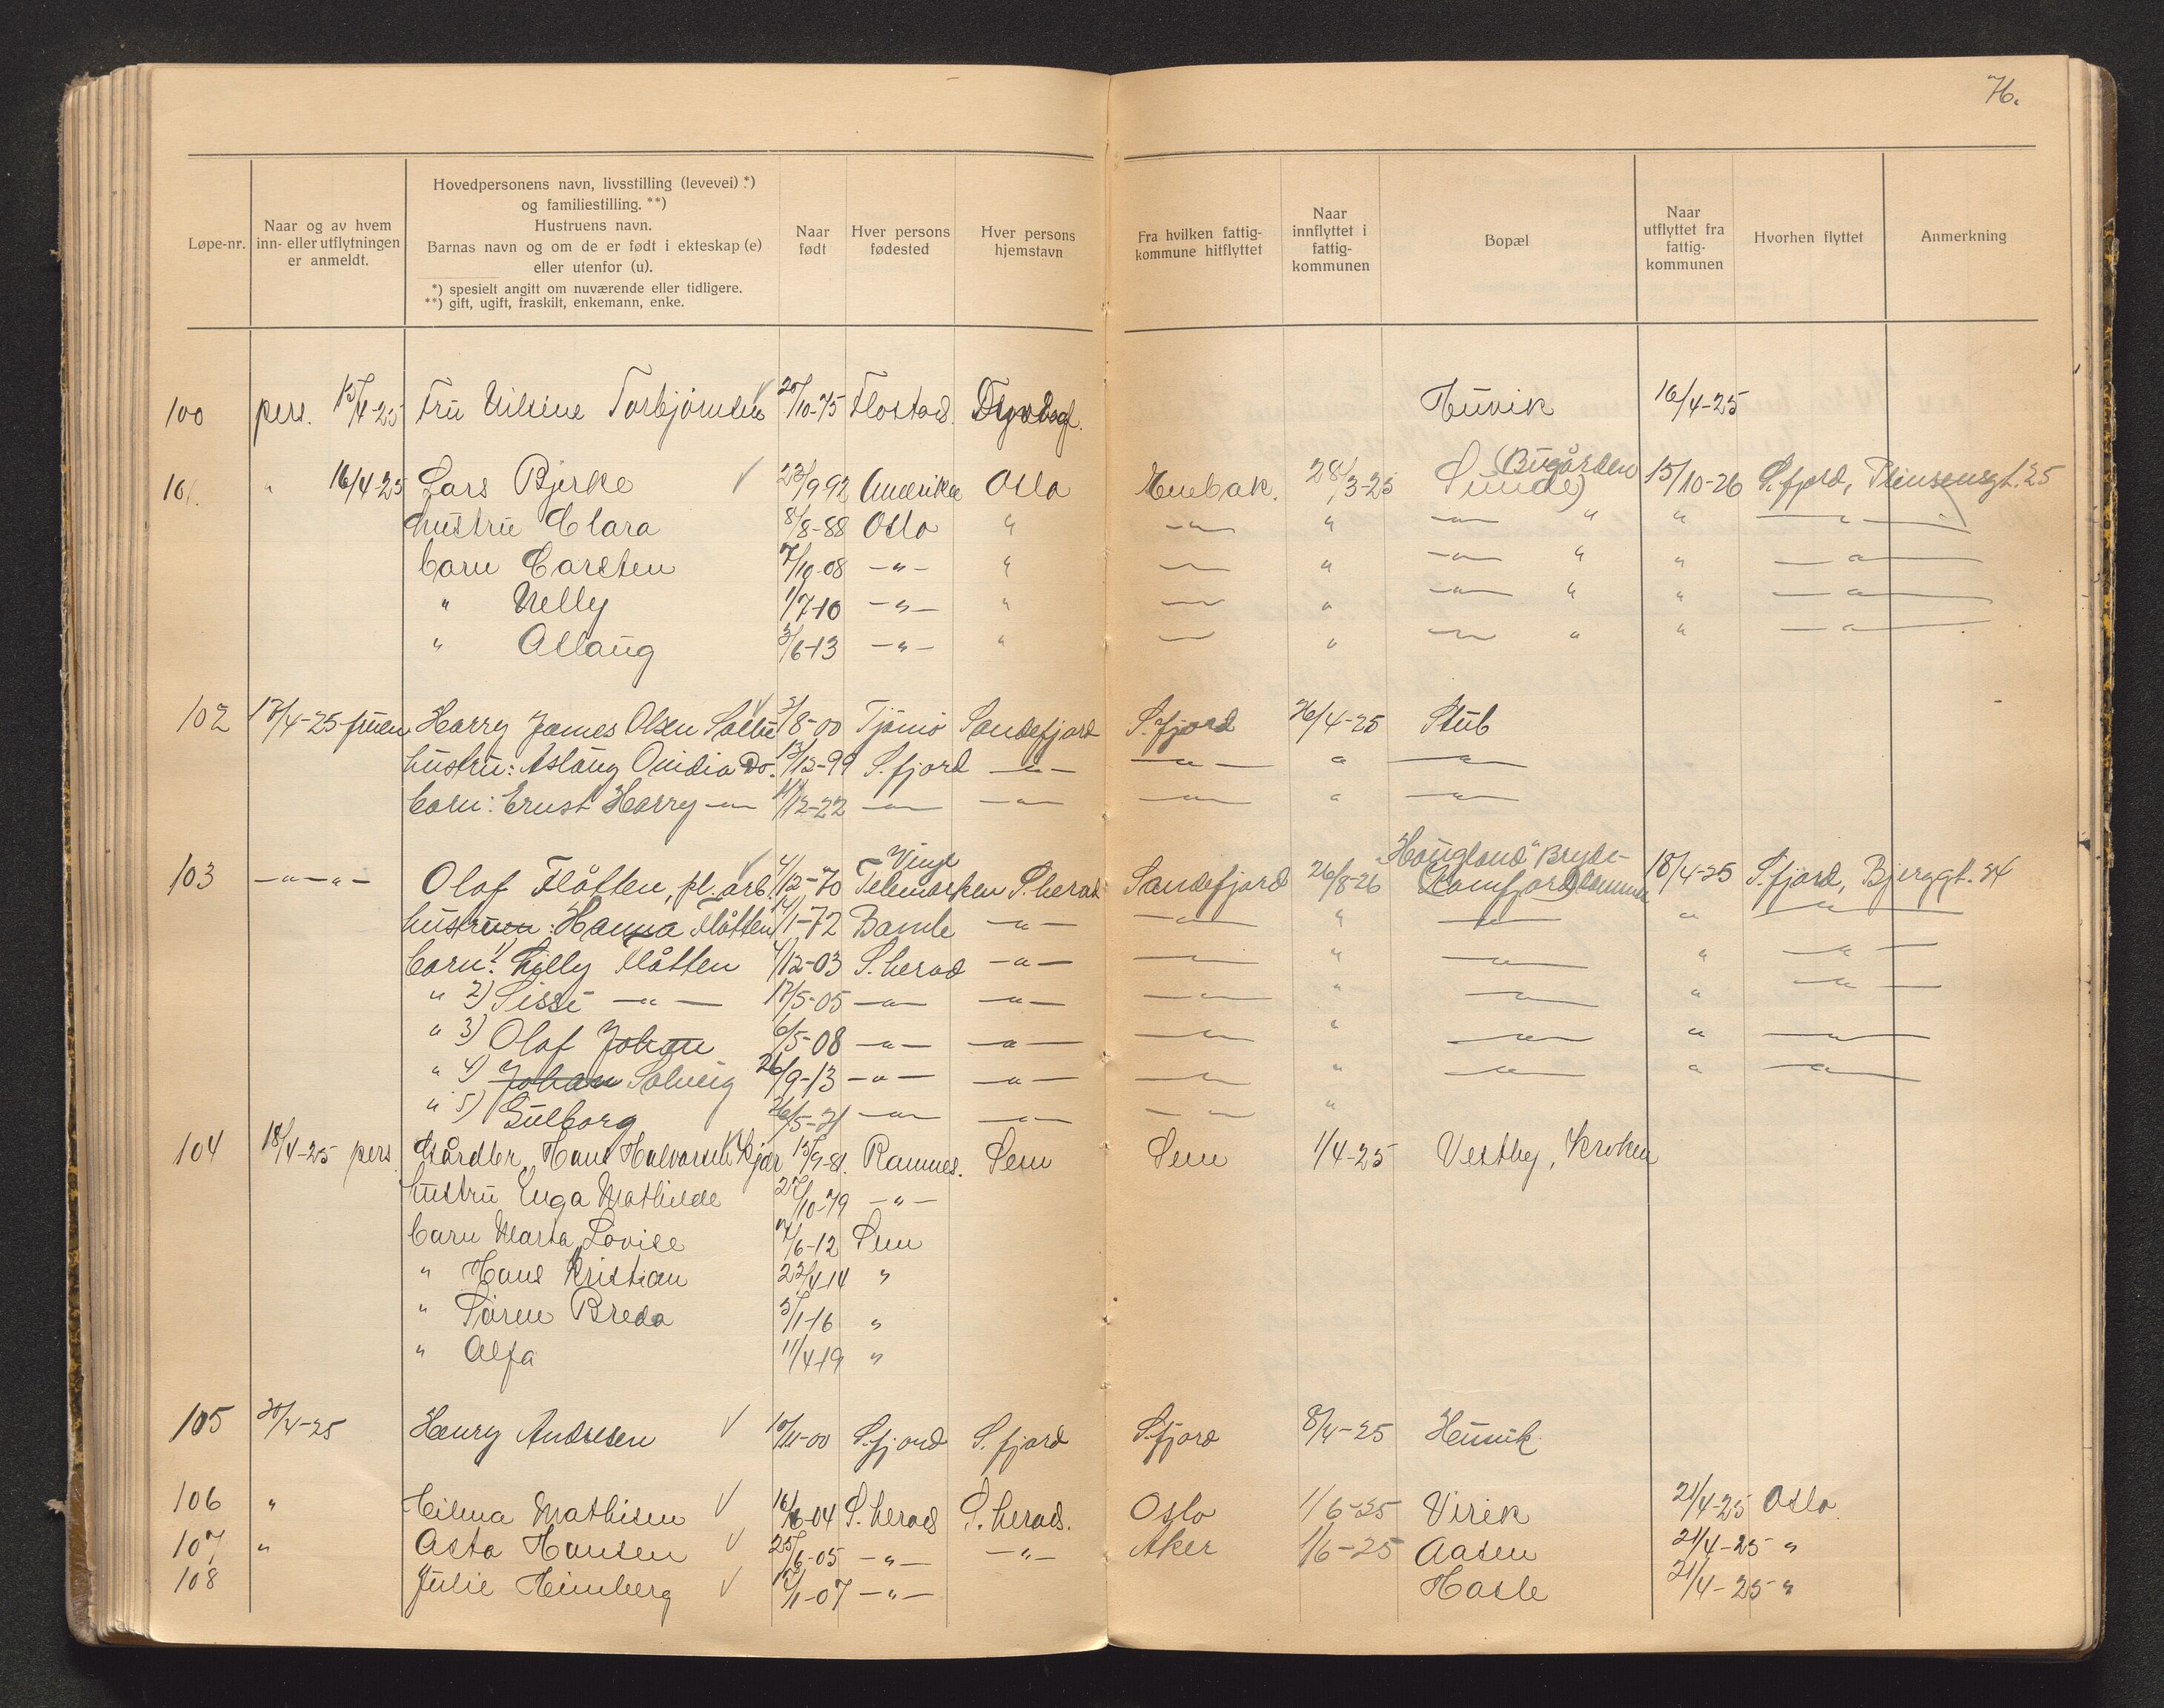 76.
Løpe-nr.
Naar og av hvem
inn- eller utflytningen
er anmeldt.
Hovedpersonens navn, livsstilling (levevei) *)
og familiestilling. **)
Hustruens navn.
Barnas navn og om de er født i ekteskap (e)
eller utenfor (u).
*) spesielt angitt om nuværende eller tidligere.
**) gift, ugift, fraskilt, enkemann, enke.
Naar
født
Hver persons
fødested
Hver persons
hjemstavn
Fra hvilken fattig-
kommune hitflyttet
Naar
innflyttet i
fattig-
kommunen
Bopæl
Naar
utflyttet fra
fattig-
kommunen
Hvorhen flyttet
Anmerkning
100 pers. 15/4-25 Fru Nilsine Torbjørnsen 20/10-75 Flostad. Huvik 16/4-25
101. " 16/4-25 Lars Bjerke 23/9-92 Amerika Oslo Enebak. 28/3-25 Sunde) Bugården 15/10-26 S.fjord, Prinsensgt. 25
hustru Clara 8/8-88 Oslo " —"— " —"— " " —"—
barn Carsten 7/10-08 —"— " — " —"— " " —"—
" Nelly 1/7-10 —"— " — " —"— " " —"—
" Aslaug 3/6-13 —"— " — " — " " —"—
102 17/4-25 fruen Harry James Olsen 3/8-00 Tjømø Sandefjord S.fjord 16/4-25 Stub
hustru: Aslaug Ovidia Do. 13/12-99 S.fjord —"— —"— " —"—
barn: Ernst Harry —"— 11/12-22 —"— —"— —"— " —"—
103 —"—"— Olaf Flåtten, pl. arb. 4/12-70 Vinje Telemarken S.herad Sandefjord 26/8-26 "Haugland" Bryde- 18/4-25 S.fjord, Bjerggt. 34
hustruen: Hanna Flåtten 14/1-72 Bamle —"— —"— " —"— " —"—
barn: 1) Lilly Flåtten 4/12-03 S.herad —"— —"— " —"— " —"—
" 2) Sissi —"— 17/5-05 —"— —"— —"— " —"— " —"—
" 3) Olaf Johan 6/5-08 —"— —"— —"— " —"— " —"—
" 4) Johan Solveig 26/9-13 —"— —"— —"— " —"— " —"—
" 5) Gulborg 26/5-21 —"— —"— — — "
104 18/4-25 pers. Gårdbr. Hans Halvorsen Kjær 15/9-81. Ramnes. Sem Sem 1/4-25 Vestby, Kroken
hustru Inga Mathilde 27/10-79 —"—
barn Marta Lovise 14/6-12 Sem
" Hans Kristian 22/4-14 "
" Søren Breda 5/1-16 "
" Alfa 11/4-19 "
105 20/4-25 Henry Andresen 10/11-00 S.fjord S.fjord S.fjord 8/4-25 Heimvik
106 " Hilma Mathisen 16/6-04 S.herad S.herad. Oslo 1/6-25 Virik 21/4-25 Oslo.
107 " Asta Hansen 25/6-05 —"— —"— Aker 1/6-25 Aasen 21/4-25 "
108 Julie Heimberg 12/1-07 —"— Hasle 21/4-25 "